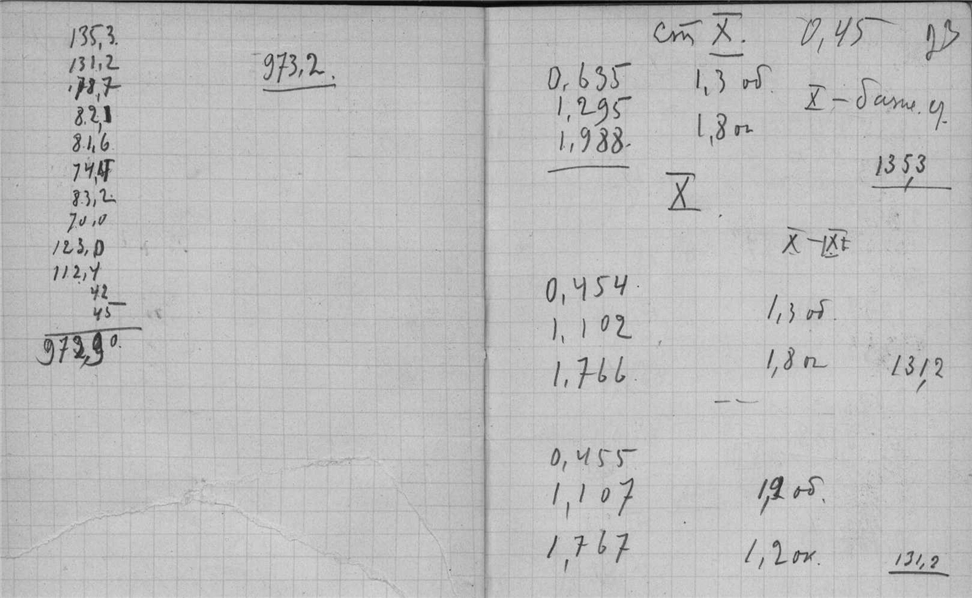 135,3
131,2
78,7
82,1
81,6
74,4
83,2
70,0
123,0
112,4
42
45
973,2.
ст X. 0,45
0,635 1,3 об.
X – баш.
1,295
1,8 ок
1,988.
135,3
X
X – XI
0,454
1,3 об.
1,102
1,766 1,8 ок 131,2
0,455
1,107 об.
1,767 1,2 ок.
131,2